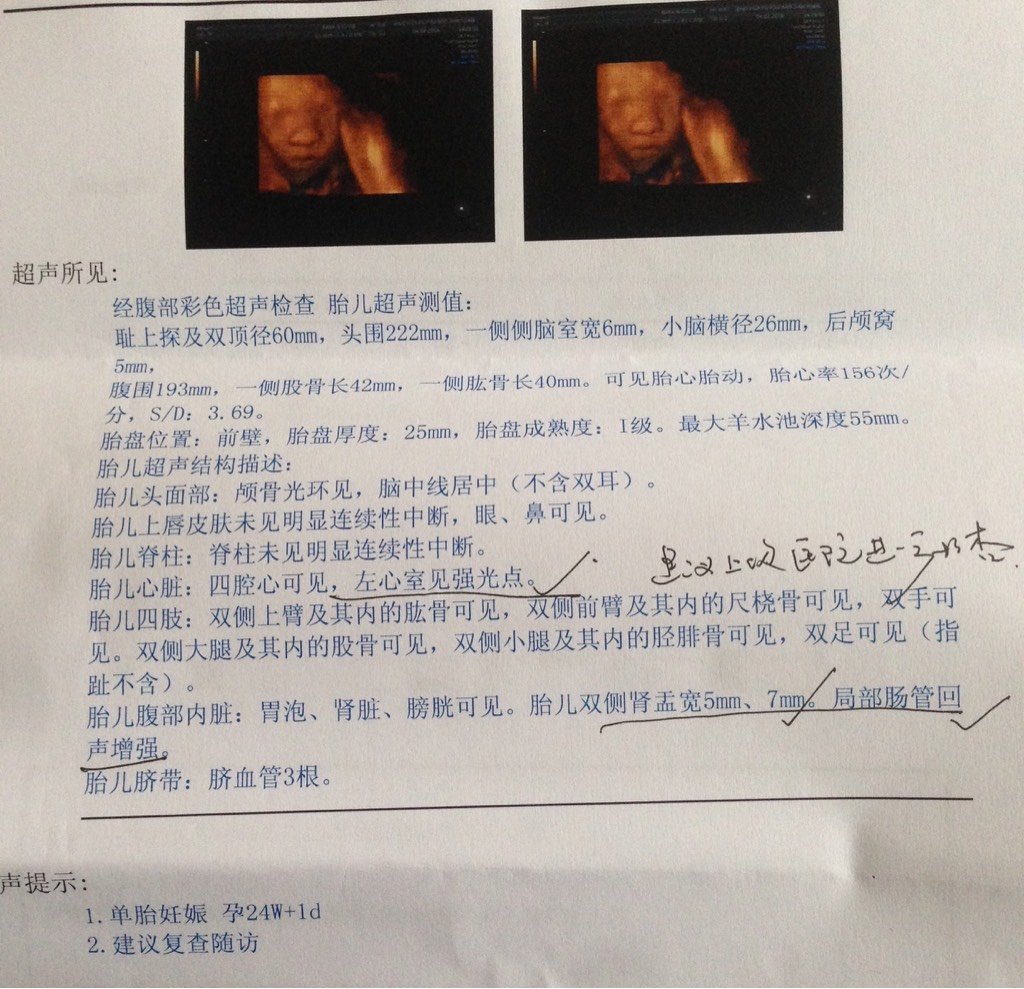 超声所见:
经腹部彩色超声检查 胎儿超声测值:
耻上探及双顶径60mm, 头围222mm, 一侧侧脑室宽6mm, 小脑横径26mm, 后颅窝
5mm,
腹围193mm, 一侧股骨长42mm, 一侧肱骨长40mm。可见胎心胎动, 胎心率156次/
分, S/D: 3.69。
胎盘位置: 前壁, 胎盘厚度: 25mm, 胎盘成熟度: I级。最大羊水池深度55mm。
胎儿超声结构描述:
胎儿头面部: 颅骨光环见, 脑中线居中（不含双耳）。
胎儿上唇皮肤未见明显连续性中断, 眼、鼻可见。
胎儿脊柱: 脊柱未见明显连续性中断。
胎儿心脏: 四腔心可见, 左心室见强光点。
上级医院进一
胎儿四肢: 双侧上臂及其内的肱骨可见, 双侧前臂及其内的尺桡骨可见, 双手可
见。双侧大腿及其内的股骨可见, 双侧小腿及其内的胫腓骨可见, 双足可见（指
趾不含）。
胎儿腹部内脏: 胃泡、肾脏、膀胱可见。胎儿双侧肾盂宽5mm、7mm。局部肠管回
声增强。
胎儿脐带: 脐血管3根。
声提示:
1.单胎妊娠 孕24W+1d
2.建议复查随访